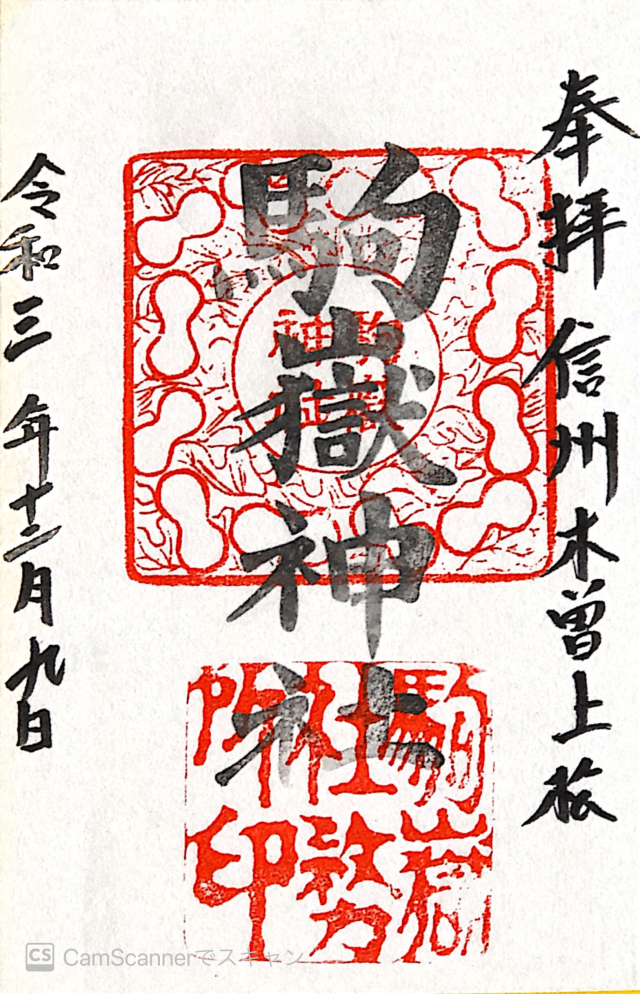 奉拝 信州木曽上松
駒嶽神社
駒嶽
神社
駒嶽
社務
所印
令和三年十二月九日
CS CamScannerでスキャン